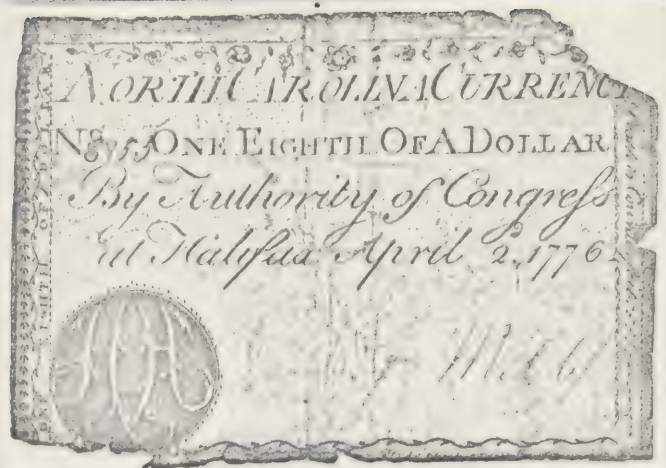 NORTH CAROLINA CURRENC
No ONE EIGHTH OF A DOLLAR
By Authority of Congress
at Halifax April 2, 1776
EIGHTH OF A DOLLAR